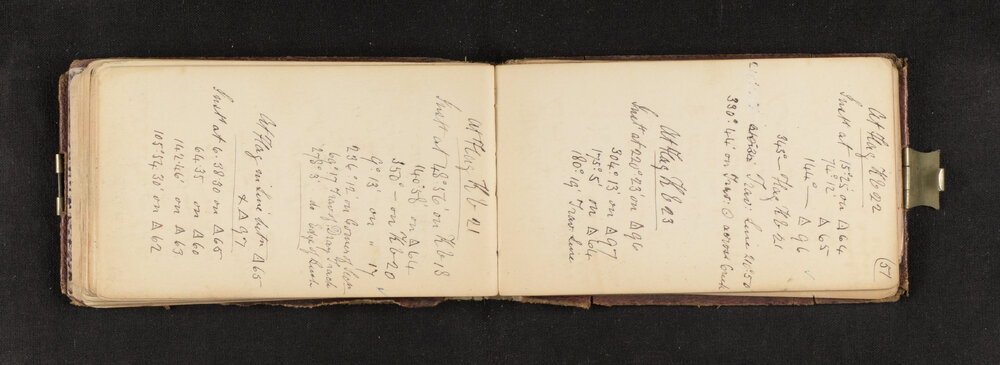 51
At Flag Kb 22
Inst at 15°45' on Δ 64
74°12' Δ 65
144°— Δ 96
345°— Flag Kb 21
across Trav: Line 21°50
330°44' on Trav: ⊙ across Creek
At Flag Kb 23
Inst at 220°23' on Δ 96
304°13' on Δ 97
175°5' on Δ 64
180°19' Trav: Line
At Flag Kb 21
Inst at 48°56' on Kb 18
140°58' on Δ 64
350°— on Kb 20
9°13' on " 17
236°12' on Corner of
60°17' of Dray Track
278°3' do edge of Bush
At Flag on line betn Δ 65
& Δ 97
Inst at 4°18'30 on Δ 65
64.35 on Δ 60
142.46' on Δ 63
105°54'30" on Δ 62